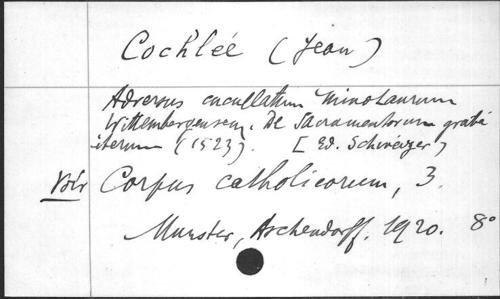 Cochlée (Jean)
Adversus cucullatum Minotaurum
Wittembergensem. De Sacramentorum gratia
iterum (1523). [Ed. Schweizer)
Voir Corpus catholicorum, 3.
Munster, Aschendorff. 1920. 8°